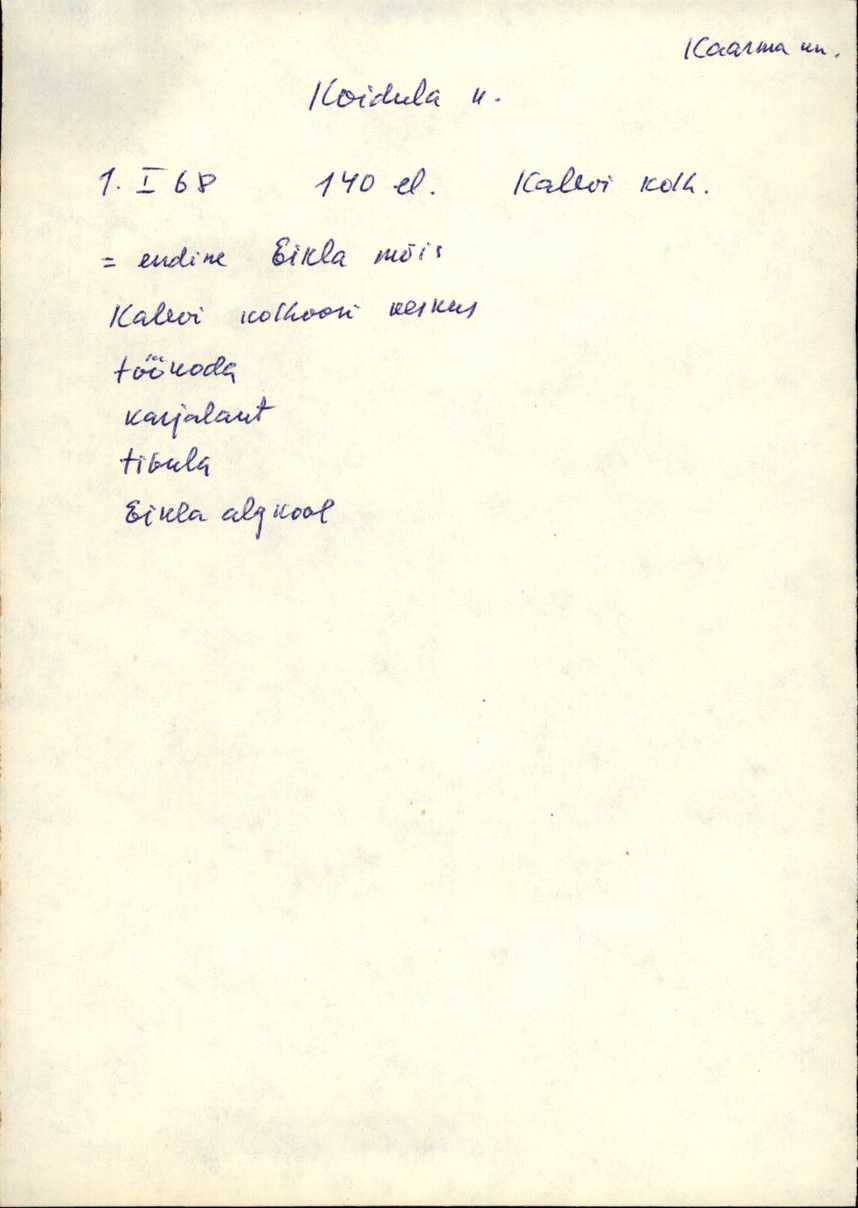 Kaarma kn.
Koidula k.
1. I 68 140 el. Kalevi kolh.
= endine Eikla mõis
Kalevi kolhoosi keskus
töökoda
karjalaut
tibula
Eikla algkool